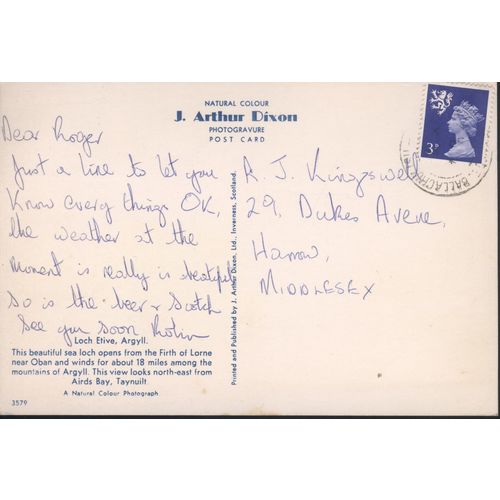 NATURAL COLOUR
J. Arthur Dixon
PHOTOGRAVURE
POST CARD
3P
Dear Roger
Just a line to let you
Know every things OK,
the weather at the
moment is really is beautiful
So is the beer + Scotch
See you soon Robin
R. J. Kingswell
29, Dukes Avene,
Harrow,
MIDDLESEX
Printed and Published by J. Arthur Dixon, Ltd., Inverness, Scotland.
Loch Etive, Argyll.
This beautiful sea loch opens from the Firth of Lorne
near Oban and winds for about 18 miles among the
mountains of Argyll. This view looks north-east from
Airds Bay, Taynuilt.
A Natural Colour Photograph
3579